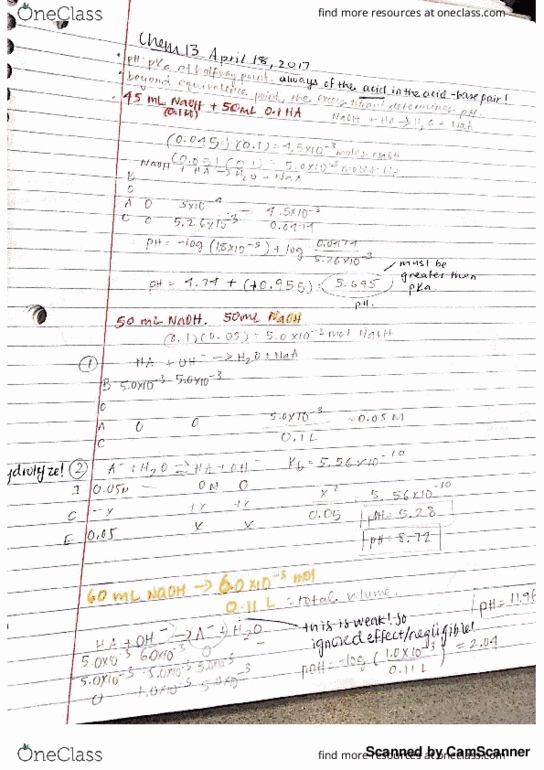 OneClass
find more resources at oneclass.com
Chem 13 April 18, 2017
• pH = pKa at halfway point. always of the acid in the acid-base pair!
• beyond equivalence point, the excess titrant determines pH.
45 mL NaOH + 50 mL 0.1 HA
NaOH + HA → H2O + NaA
(0.045)(0.1) = 4.5x10^-3 moles NaOH
(0.1) = 5.0x10^-3 moles
NaOH + HA → H2O + NaA
B
C
A 0 5x10^-4 4.5x10^-3
C 0 5.26x10^-3 0.0474
pH = -log (1.8x10^-5) + log 0.0474 / 5.26x10^-3
must be greater than pKa.
pH = 4.74 + (+0.955) = 5.695
pH.
50 mL NaOH. 50 mL NaOH
(0.1)(0.05) = 5.0x10^-3 mol NaOH
① HA + OH^- → H2O + NaA
B 5.0x10^-3 5.0x10^-3
C
A 0 0 5.0x10^-3 / 0.1 L = 0.05 M
C
ydrolyze! ② A^- + H2O ⇌ HA + OH^- Kb = 5.56x10^-10
I 0.05M — 0M 0
C -x +x +x
x^2 / 0.05 = 5.56x10^-10
E 0.05 x x
pOH = 5.28
pH = 8.72
60 mL NaOH → 6.0x10^-3 mol
0.11 L = total volume.
HA + OH^- → A^- + H2O
this is weak! so ignored effect/negligible!
pH = 11.96
5.0x10^-3 6.0x10^-3 0
-5.0x10^-3 -5.0x10^-3 5.0x10^-3
0 1.0x10^-3 5.0x10^-3
pOH = -log (1.0x10^-3 / 0.11 L) = 2.04
OneClass
find more resources at oneclass.com
Scanned by CamScanner